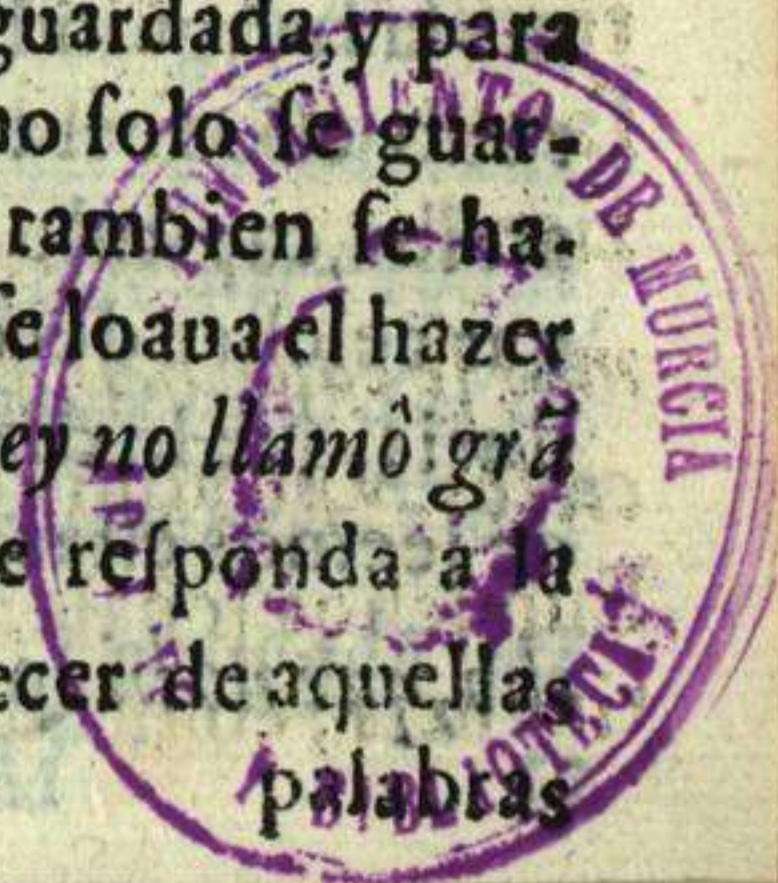 guardada, y para
no ſolo ſe guar-
tambien ſe ha-
ſe loaua el hazer
ey no llamô grã
e reſponda a la
ecer de aquellas
palabras
DE MURCIA
BIBLIOTECA